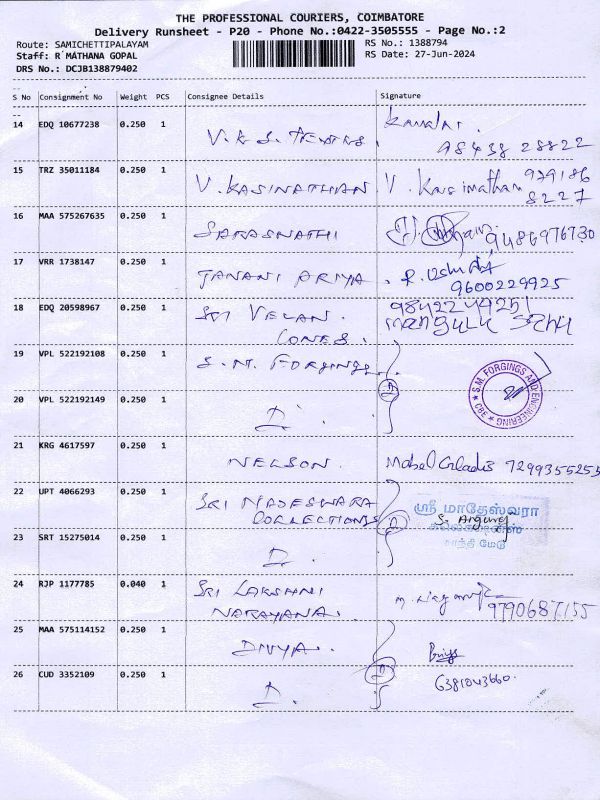 THE PROFESSIONAL COURIERS, COIMBATORE
Delivery Runsheet - P20 - Phone No.:0422-3505555 - Page No.:2
Route: SAMICHETTIPALAYAM
RS No.: 1388794
Staff: R MATHANA GOPAL
RS Date: 27-Jun-2024
DRS No.: DCJB138879402
S No Consignment No Weight PCS Consignee Details Signature
14 EDQ 10677238 0.250 1 V.K.S. 98438 28822
15 TRZ 35011184 0.250 1 V. KASINATHAN. V. Kasinathan 979186
8227
16 MAA 575267635 0.250 1 SARASWATHI 9486976730
17 VRR 1738147 0.250 1 JANANI PRIYA. R.
9600229925
18 EDQ 20598967 0.250 1 SRI VELAN 9842244251
CONES.
19 VPL 522192108 0.250 1 S.M. FORGINGS
S.M. FORGINGS AND ENGINEERING ★ CBE ★
20 VPL 522192149 0.250 1 D.
21 KRG 4617597 0.250 1 NELSON. Mabel Gladis 7299355255
22 UPT 4066293 0.250 1 SRI MADESWARA ஸ்ரீ மாதேஸ்வரா
COLLECTIONS S.
கலெக்சன்ஸ்
23 SRT 15275014 0.250 1 D. காந்தி மேடு
24 RJP 1177785 0.040 1 SRI LAKSHMI
NARAYANA. 9790687155
25 MAA 575114152 0.250 1 DIVYA.
26 CUD 3352109 0.250 1 D. 6381043660